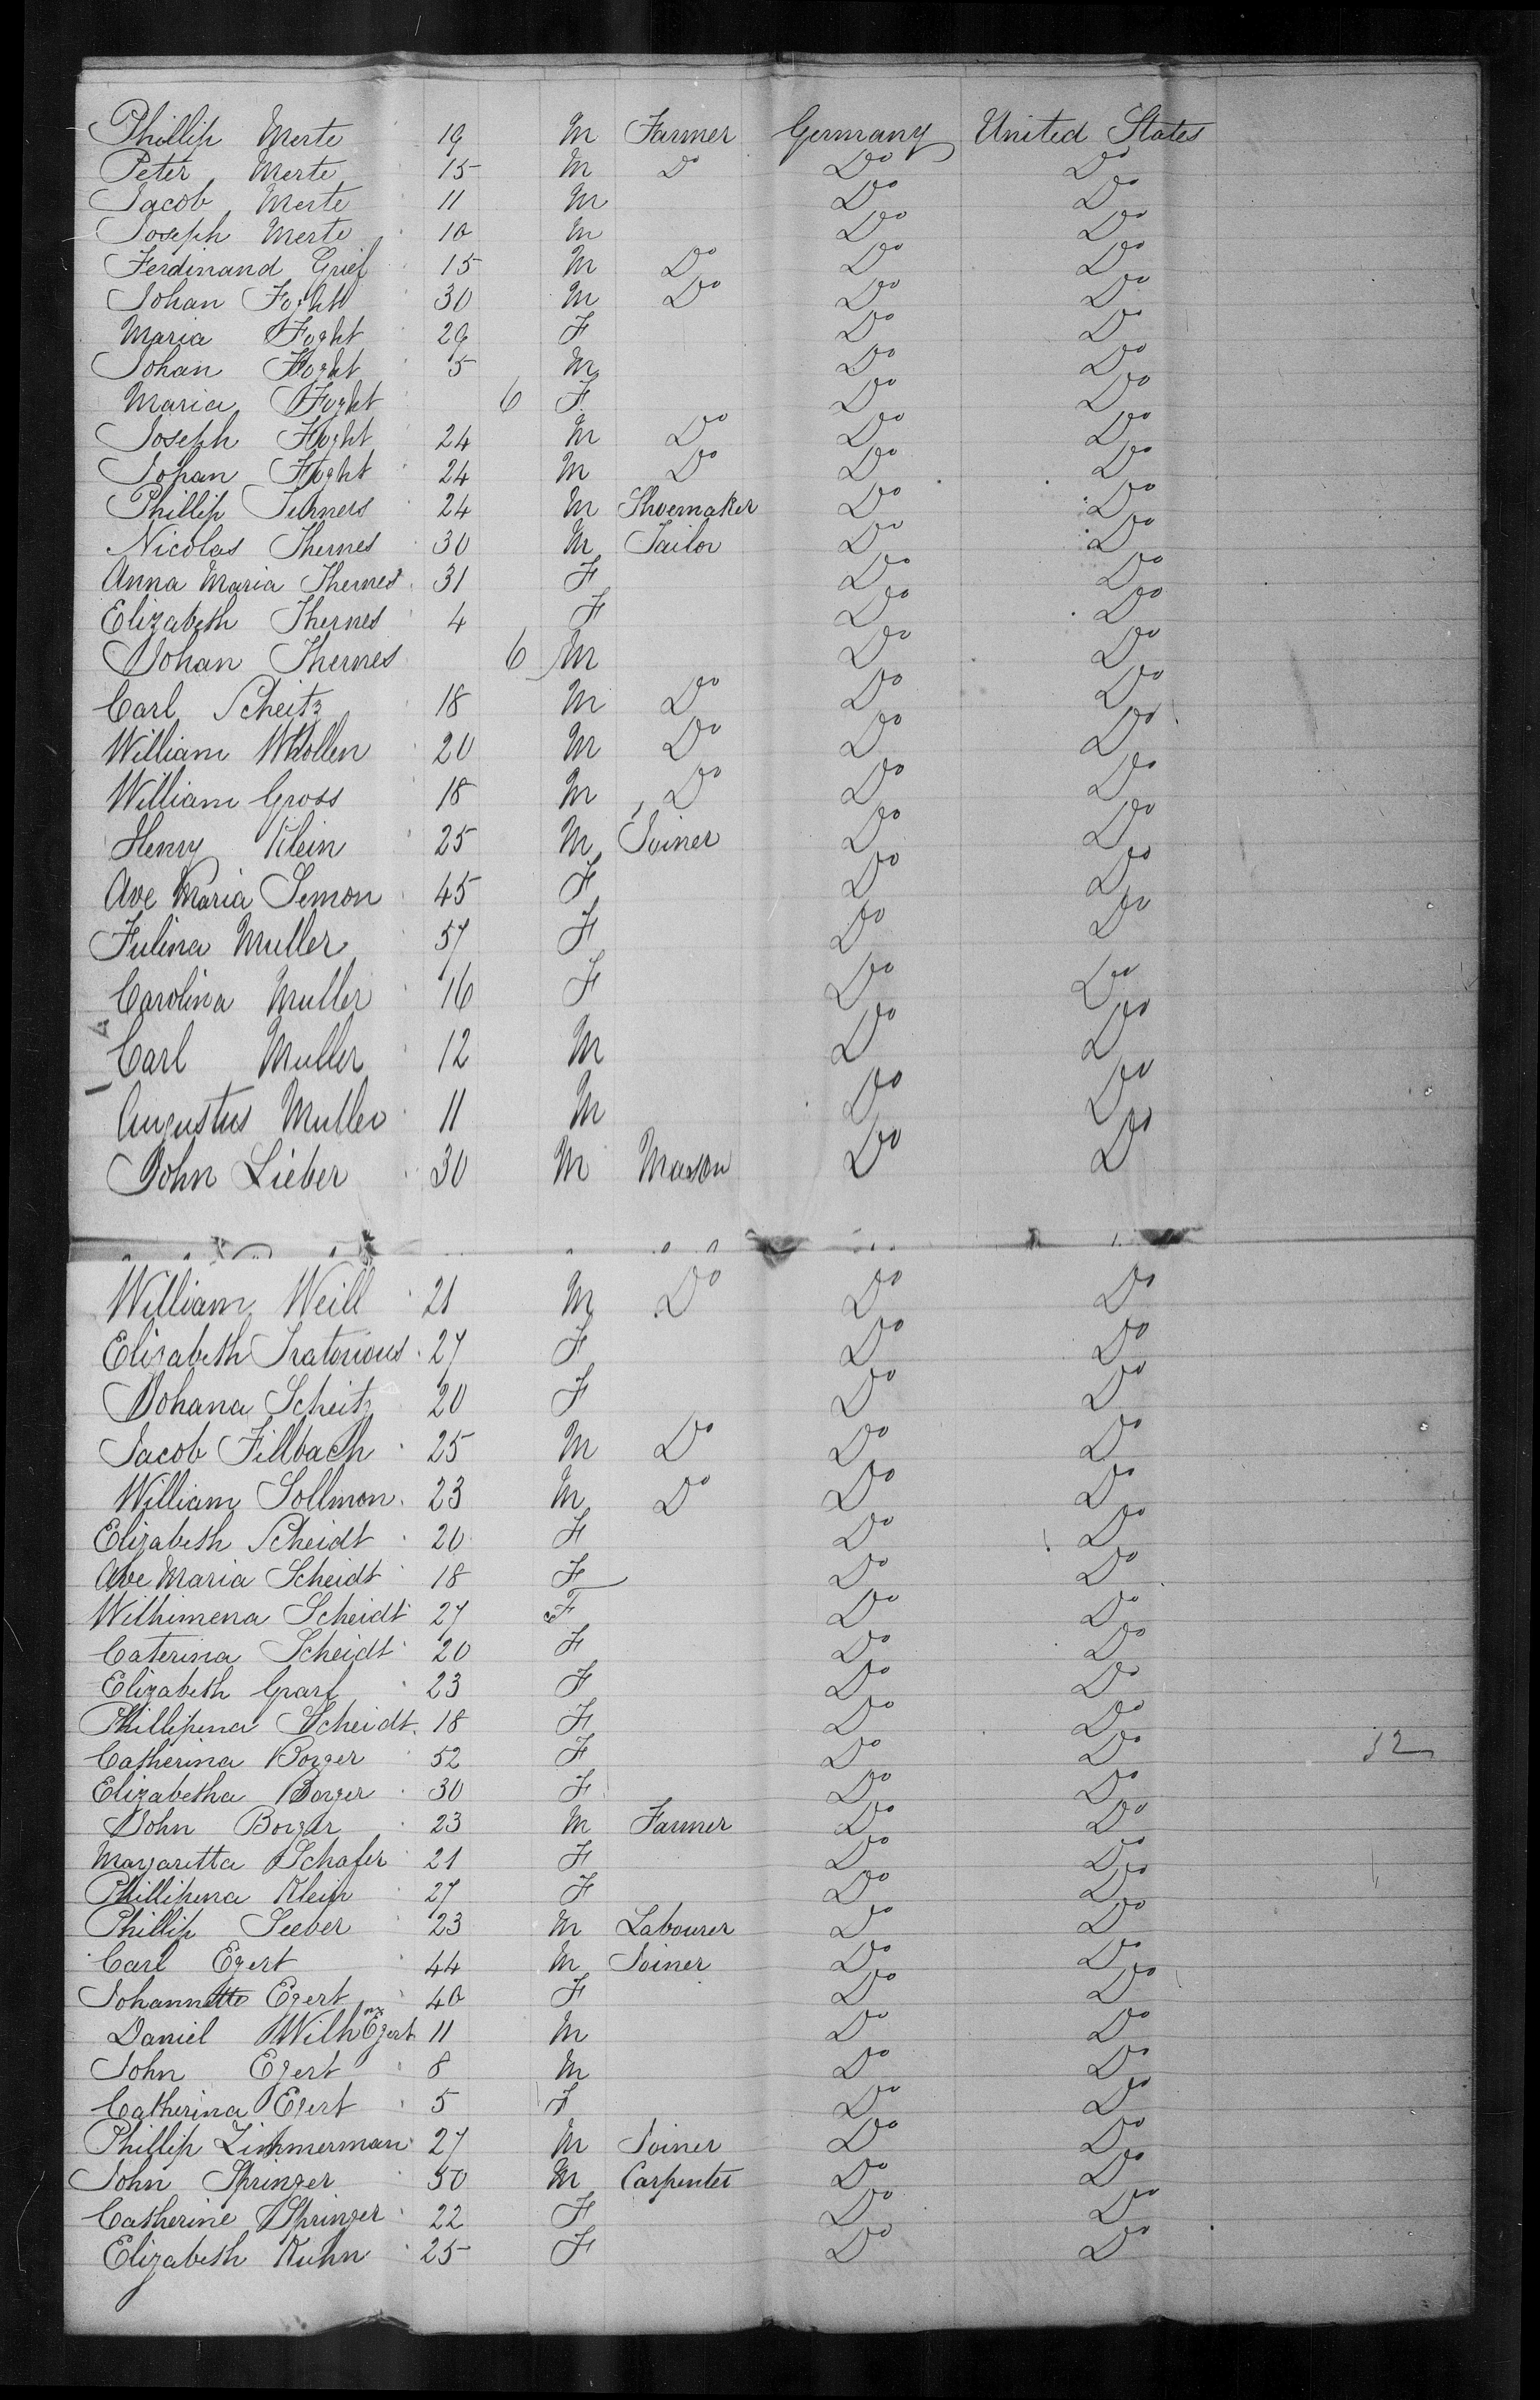 Phillip Merte 19 M Farmer Germany United States
Peter Merte 15 M Do Do Do
Jacob Merte 11 M Do Do
Joseph Merte 10 M Do Do
Ferdinand Grief 15 M Do Do Do
Johan Foght 30 M Do Do Do
Maria Foght 29 F Do Do
Johan Foght 5 M Do Do
Maria Foght 6 F Do Do
Joseph Foght 24 M Do Do Do
Johan Foght 24 M Do Do Do
Phillip 24 M Shoemaker Do Do
Nicolas Thernes 30 M Tailor Do Do
Anna Maria Thernes 31 F Do Do
Elizabeth Thernes 4 F Do Do
Johan Thernes 6 M Do Do
Carl Scheitz 18 M Do Do Do
William Whollen 20 M Do Do Do
William Gross 18 M Do Do Do
Henry Klein 25 M Joiner Do Do
Ave Maria Semon 45 F Do Do
Julina Muller 57 F Do Do
Carolina Muller 16 F Do Do
Carl Muller 12 M Do Do
Augustus Muller 11 M Do Do
John Lieber 30 M Mason Do Do
William Weill 21 M Do Do Do
Elizabeth 27 F Do Do
Johana Scheitz 20 F Do Do
Jacob Fillbach 25 M Do Do Do
William Sollmon 23 M Do Do Do
Elizabeth Scheidt 20 F Do Do
Ave Maria Scheidt 18 F Do Do
Wilhimena Scheidt 27 F Do Do
Caterina Scheidt 20 F Do Do
Elizabeth Graf 23 F Do Do
Phillipena Scheidt 18 F Do Do
Catherina Borger 52 F Do Do 32
Elizabetha Borger 30 F Do Do
John Borger 23 M Farmer Do Do
Margaretta Schafer 21 F Do Do
Phillipena Klein 27 F Do Do
Phillip Seeber 23 M Labourer Do Do
Carl Egert 44 M Joiner Do Do
Johannette Egert 40 F Do Do
Daniel Wilh Egert 11 M Do Do
John Egert 8 M Do Do
Catherina Egert 5 F Do Do
Phillip Zimmerman 27 M Joiner Do Do
John Springer 50 M Carpenter Do Do
Catherine Springer 22 F Do Do
Elizabeth Kuhn 25 F Do Do